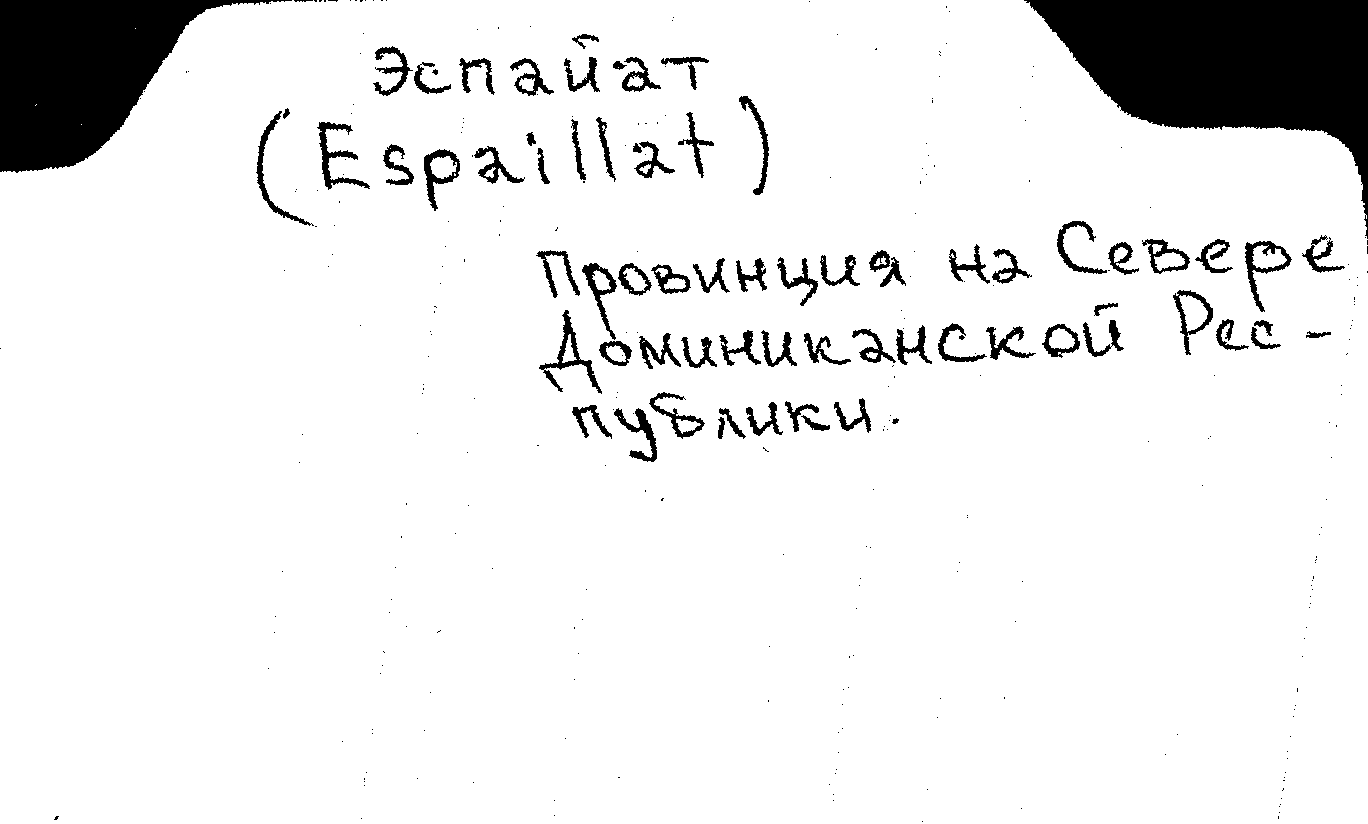 Эспайат
(Espaillat)
Провинция на Севере
Доминиканской Рес-
публики.